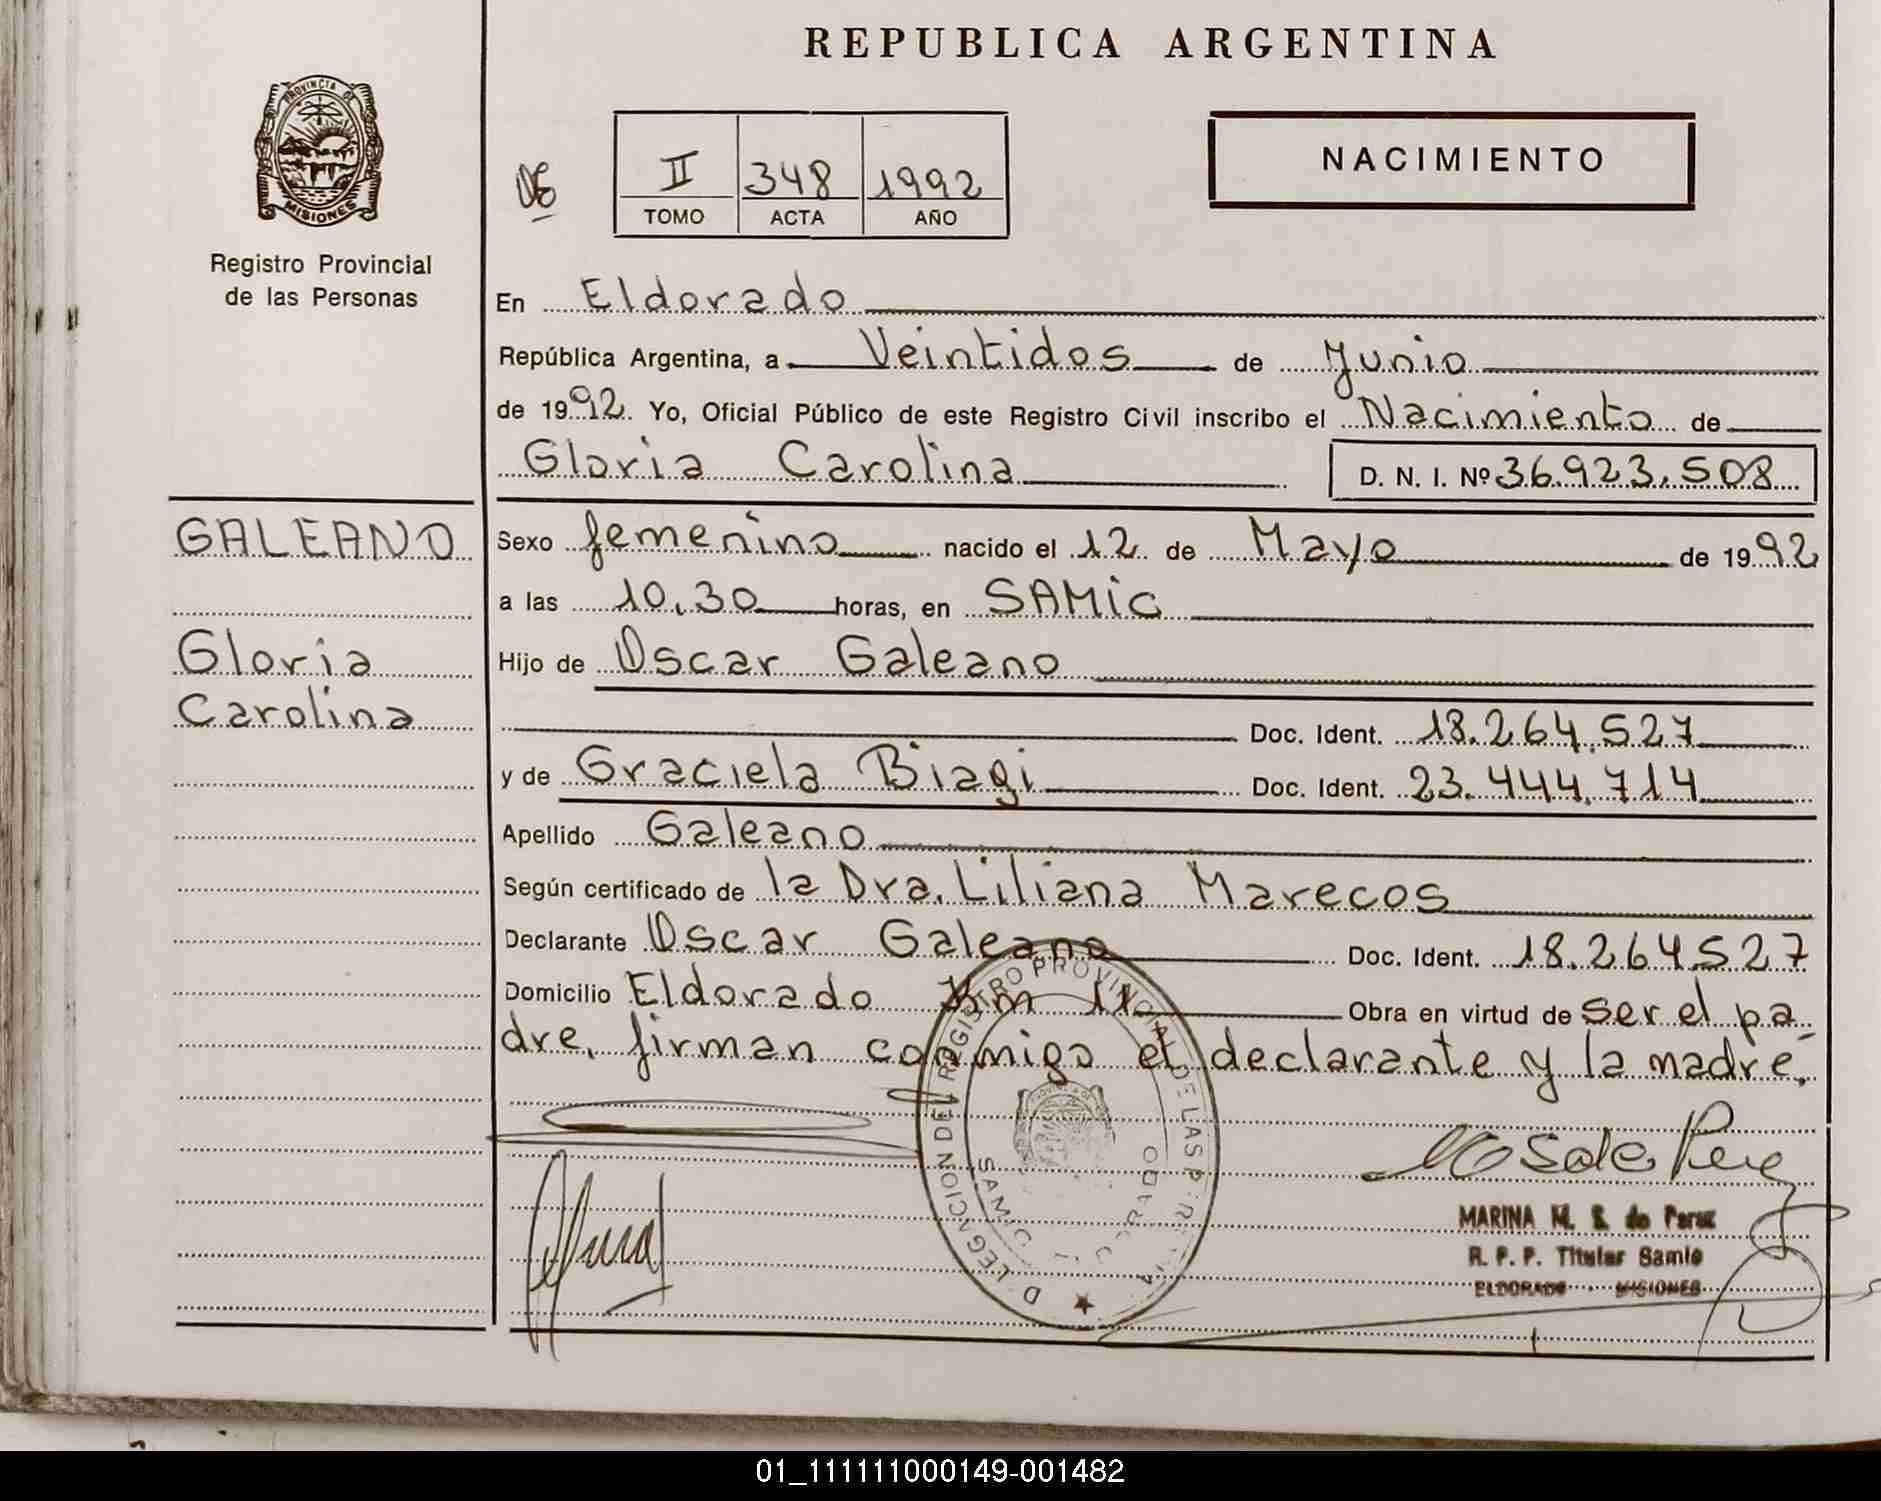 REPUBLICA ARGENTINA
PROVINCIA DE
MISIONES
Registro Provincial
de las Personas
06
II 348 1992
TOMO ACTA AÑO
NACIMIENTO
En Eldorado
República Argentina, a Veintidos de Junio
de 1992. Yo, Oficial Público de este Registro Civil inscribo el Nacimiento de
Gloria Carolina D. N. I. Nº 36.923.508
GALEANO
Gloria
Carolina
Sexo femenino nacido el 12 de Mayo de 1992
a las 10,30 horas, en SAMIC
Hijo de Oscar Galeano
Doc. Ident. 18.264.527
y de Graciela Biagi Doc. Ident. 23.444.714
Apellido Galeano
Según certificado de la Dra. Liliana Marecos
Declarante Oscar Galeano Doc. Ident. 18.264.527
Domicilio Eldorado Km 11 Obra en virtud de ser el pa
dre, firman conmigo el declarante y la madre.
MARINA M. S. de Perez
R. P. P. Titular Samic
ELDORADO - MISIONES
01_111111000149-001482